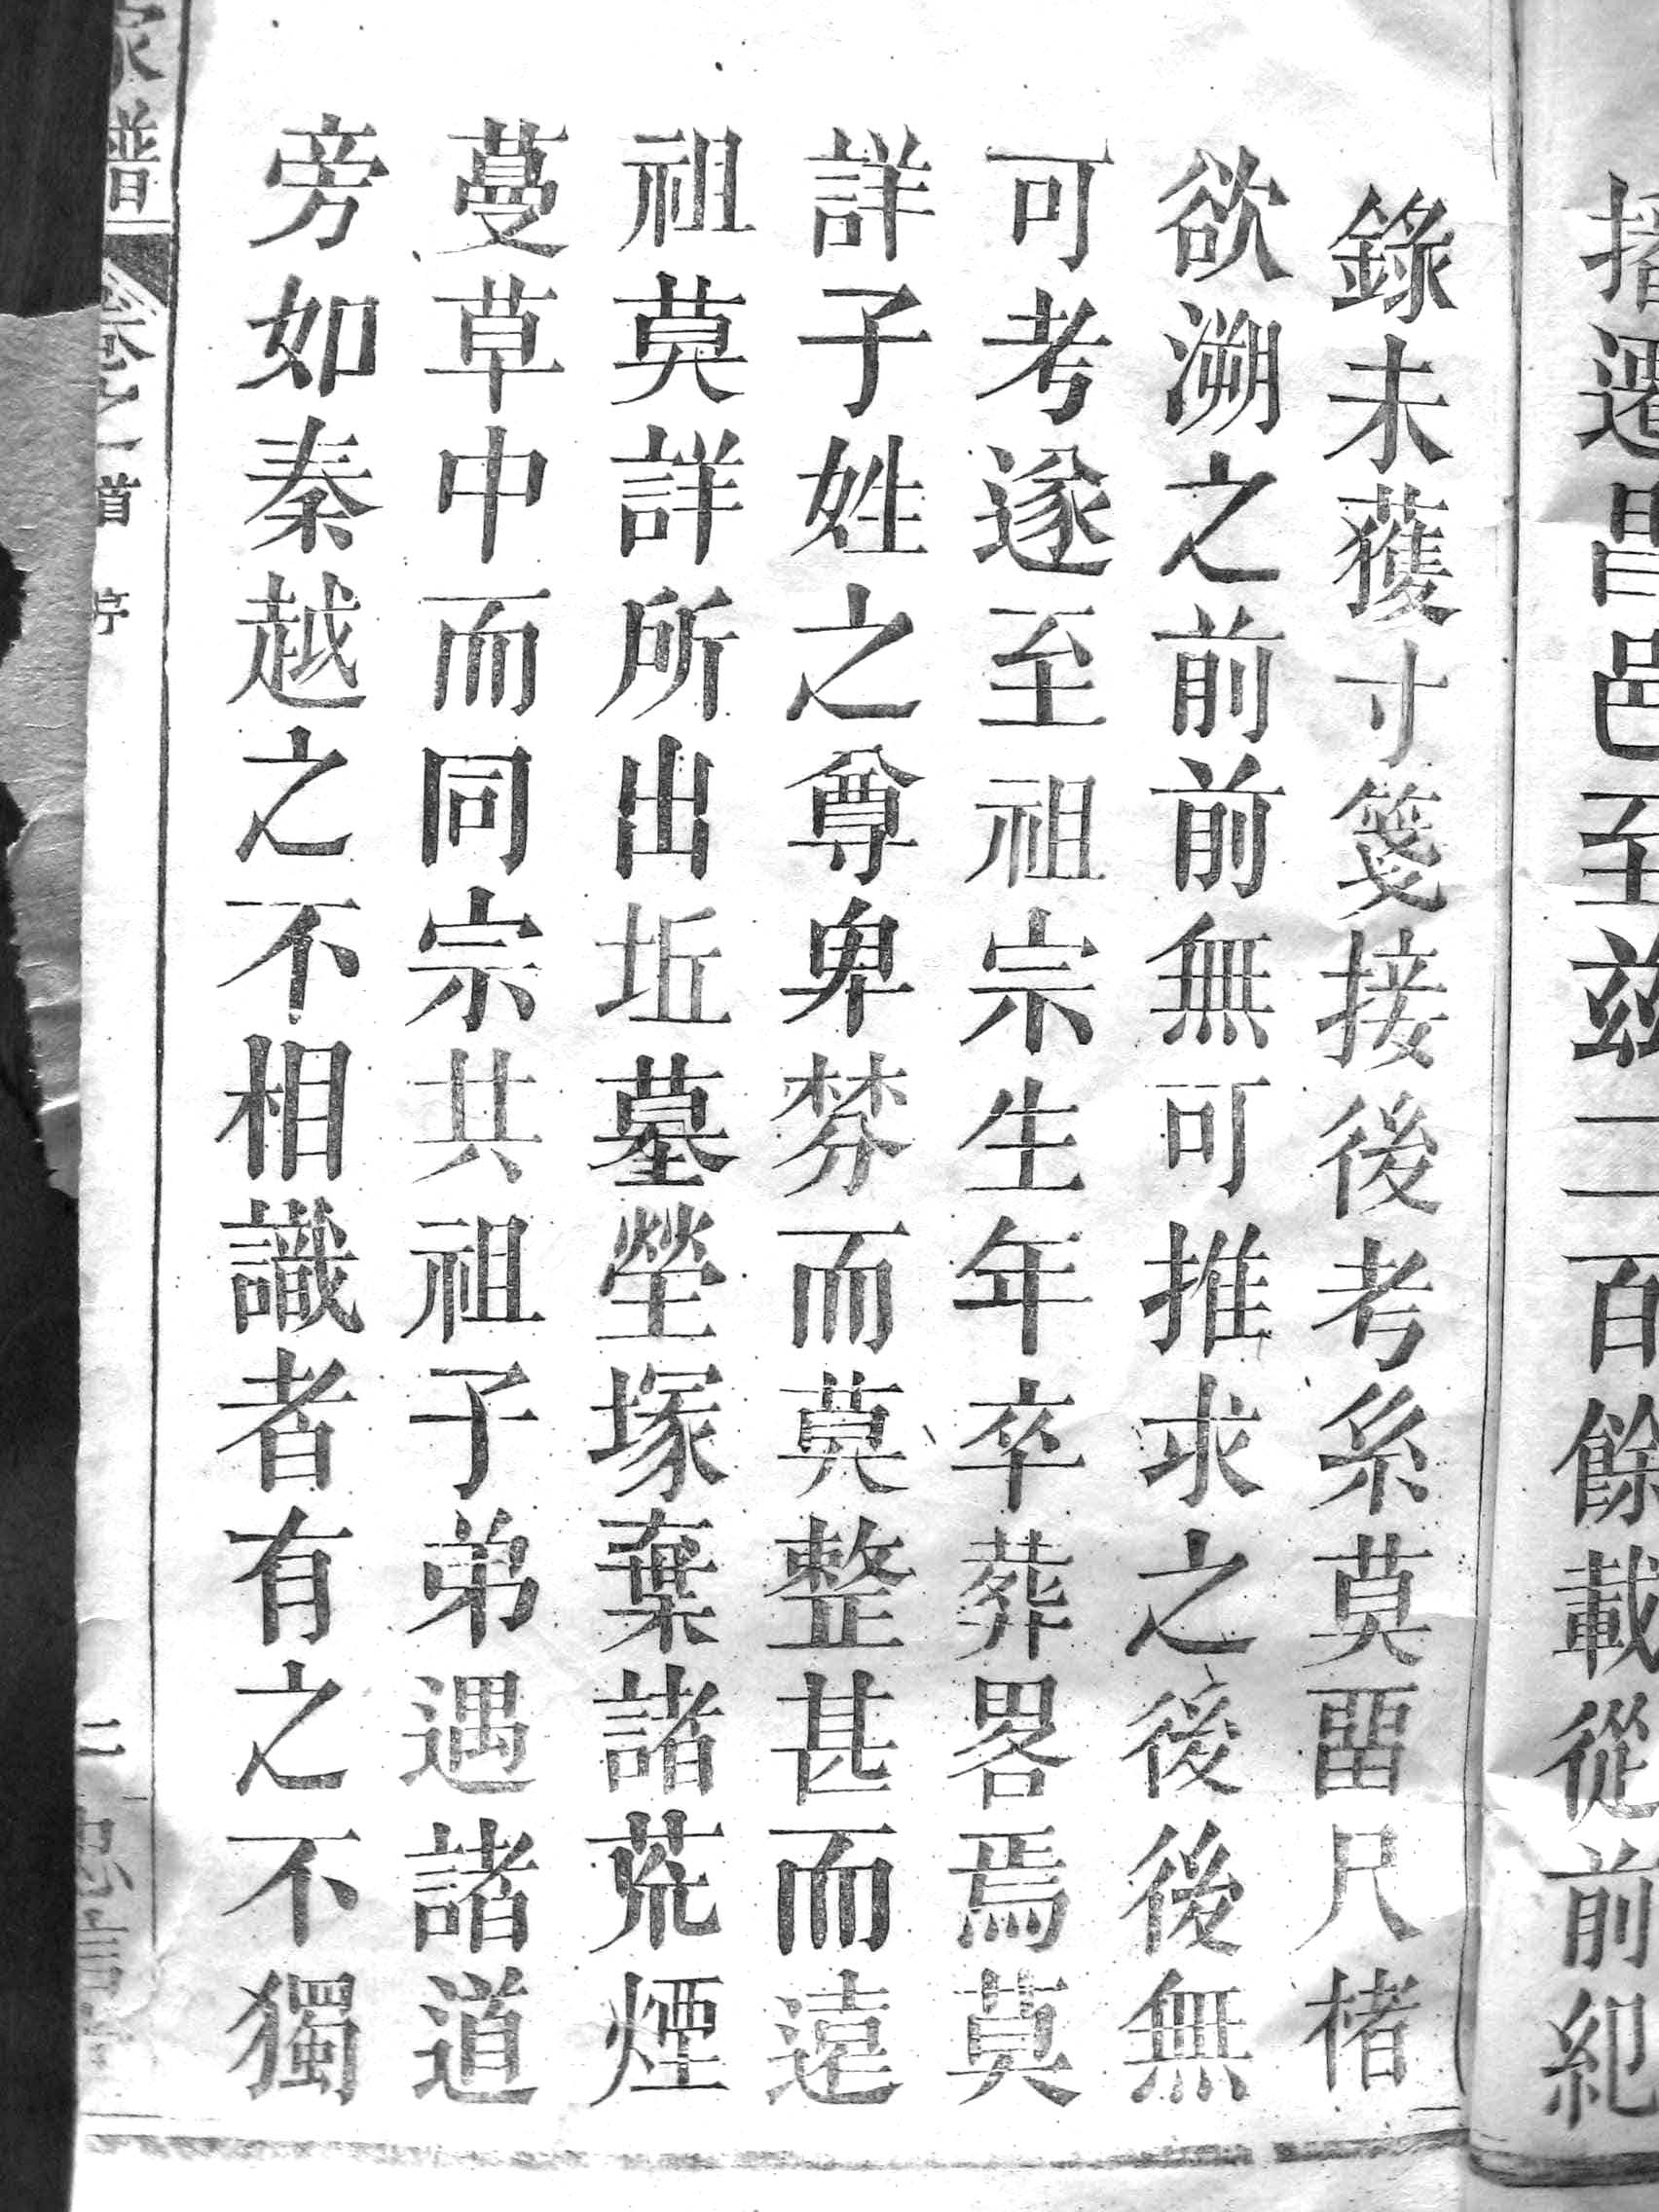 播遷昌邑至茲二百餘載從前紀
錄未獲寸箋接後考系莫畱尺楮
欲溯之前前無可推求之後後無
可考遂至祖宗生年卒葬畧焉莫
詳子姓之尊卑棼而莫整甚而遠
祖莫詳所出坵墓塋塚棄諸荒煙
蔓草中而同宗共祖子弟遇諸道
旁如秦越之不相識者有之不獨
家普
卷一首
序
二